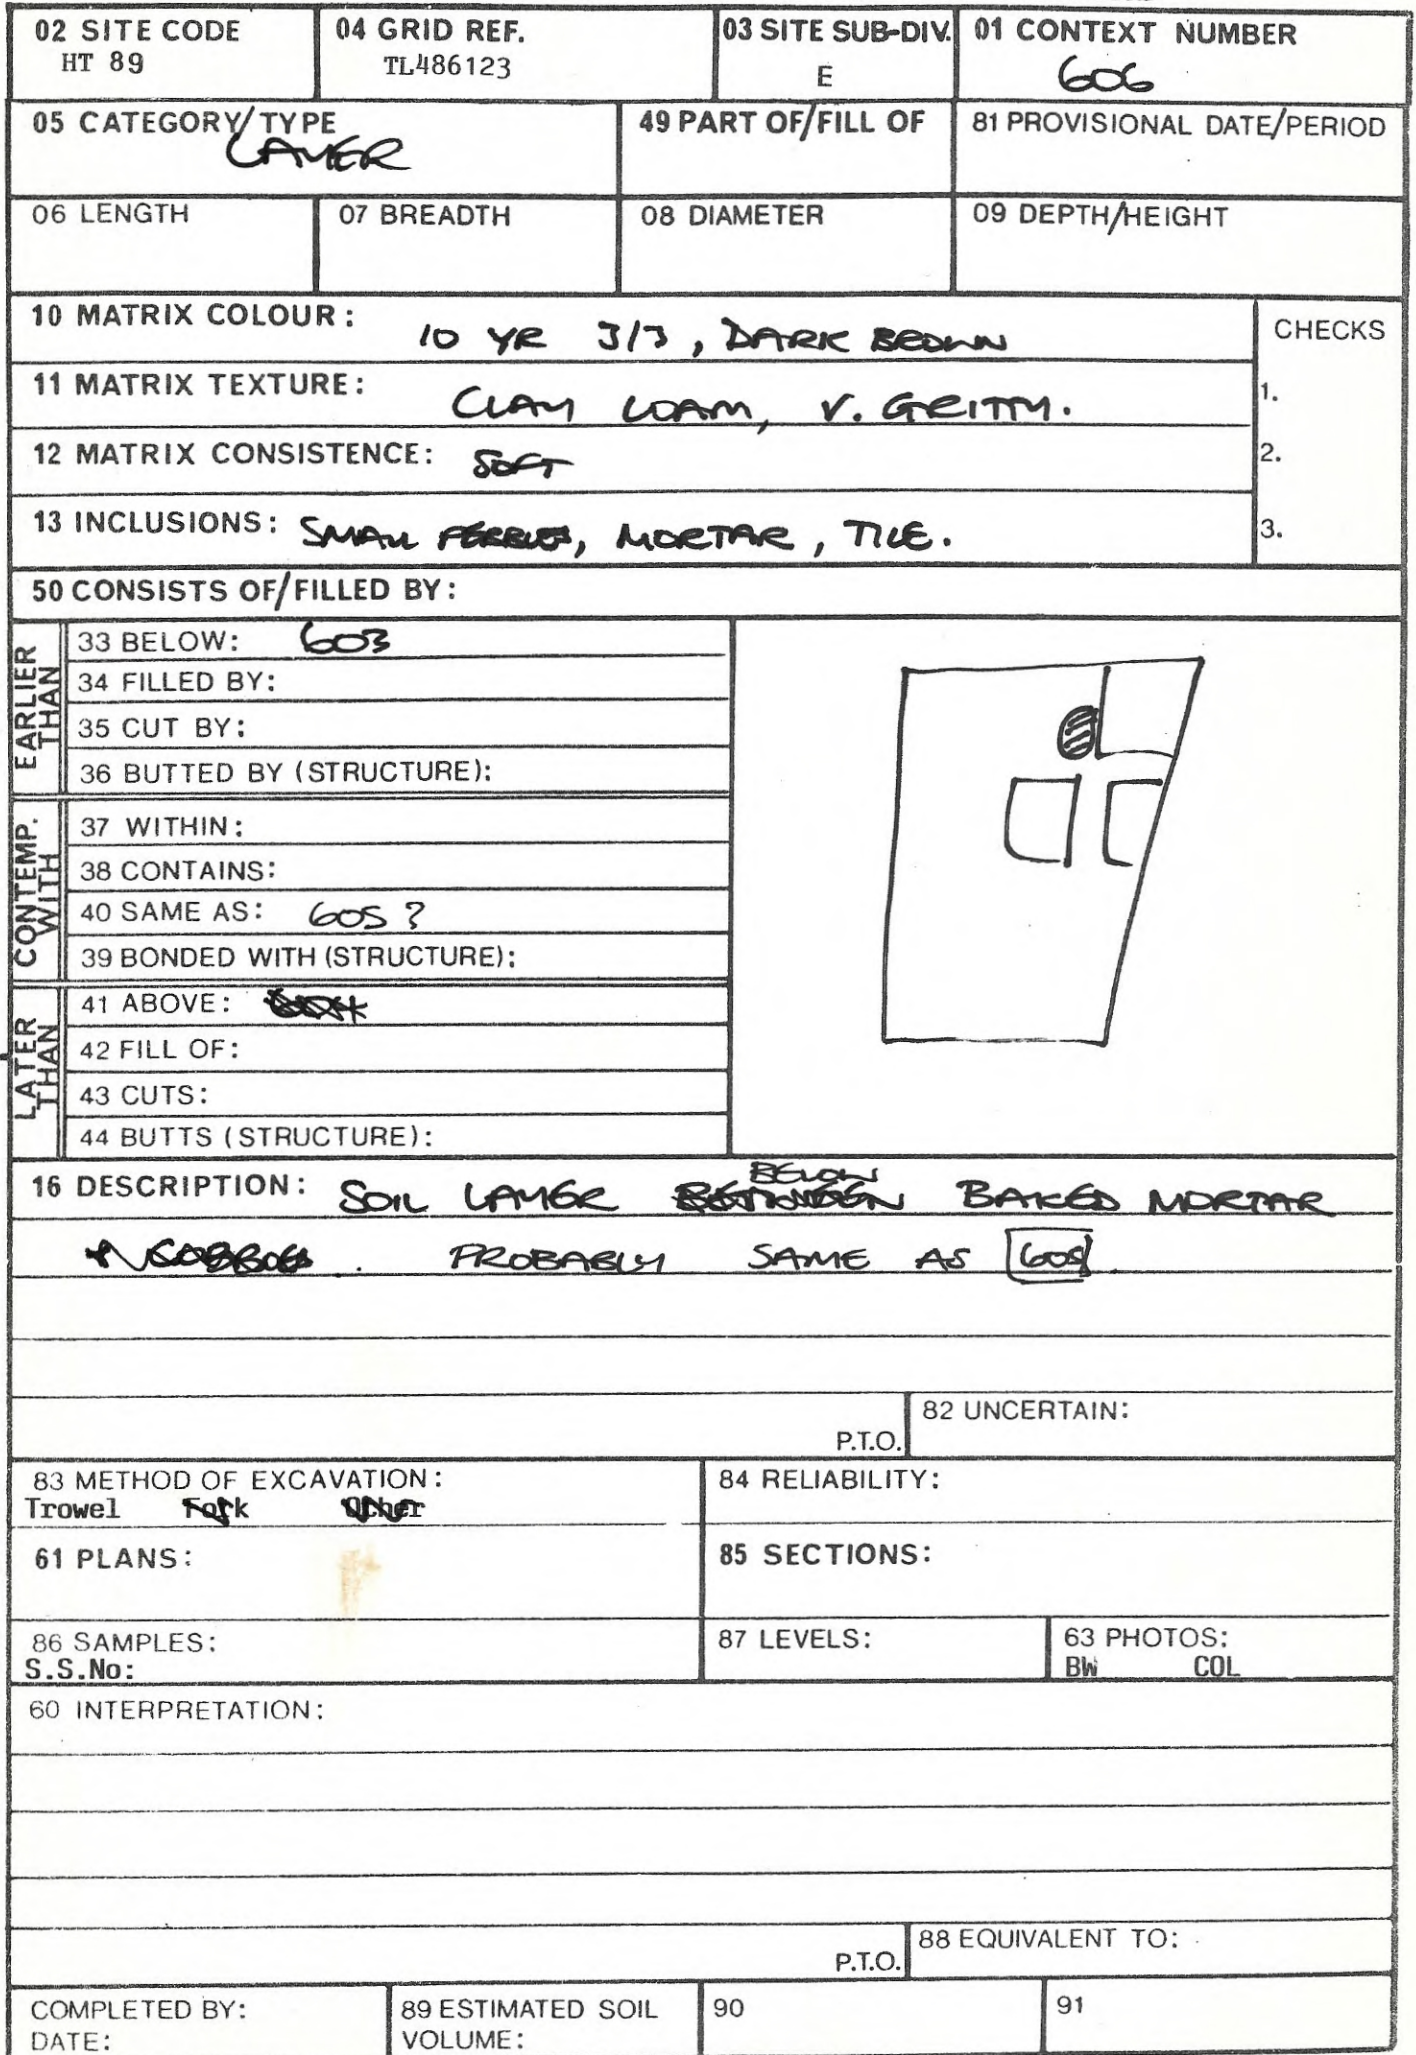 02 SITE CODE 04 GRID REF. 03 SITE SUB-DIV. 01 CONTEXT NUMBER
HT 89 TL486123 E 606
05 CATEGORY/TYPE 49 PART OF/FILL OF 81 PROVISIONAL DATE/PERIOD
LAYER
06 LENGTH 07 BREADTH 08 DIAMETER 09 DEPTH/HEIGHT
10 MATRIX COLOUR: 10 YR 3/3, DARK BROWN CHECKS
11 MATRIX TEXTURE: CLAY LOAM, V. GRITTY. 1.
12 MATRIX CONSISTENCE: SOFT 2.
13 INCLUSIONS: SMALL PEBBLES, MORTAR, TILE. 3.
50 CONSISTS OF/FILLED BY:
EARLIER THAN
33 BELOW: 603
34 FILLED BY:
35 CUT BY:
36 BUTTED BY (STRUCTURE):
CONTEMP. WITH
37 WITHIN:
38 CONTAINS:
40 SAME AS: 605?
39 BONDED WITH (STRUCTURE):
LATER THAN
41 ABOVE: 604
42 FILL OF:
43 CUTS:
44 BUTTS (STRUCTURE):
BELOW
16 DESCRIPTION: SOIL LAYER BETWEEN BAKED MORTAR
PROBABLY SAME AS 605
82 UNCERTAIN:
P.T.O.
83 METHOD OF EXCAVATION: 84 RELIABILITY:
Trowel Fork Other
61 PLANS: 85 SECTIONS:
86 SAMPLES: 87 LEVELS: 63 PHOTOS:
S.S.No: BW COL
60 INTERPRETATION:
88 EQUIVALENT TO:
P.T.O.
COMPLETED BY: 89 ESTIMATED SOIL 90 91
DATE: VOLUME: